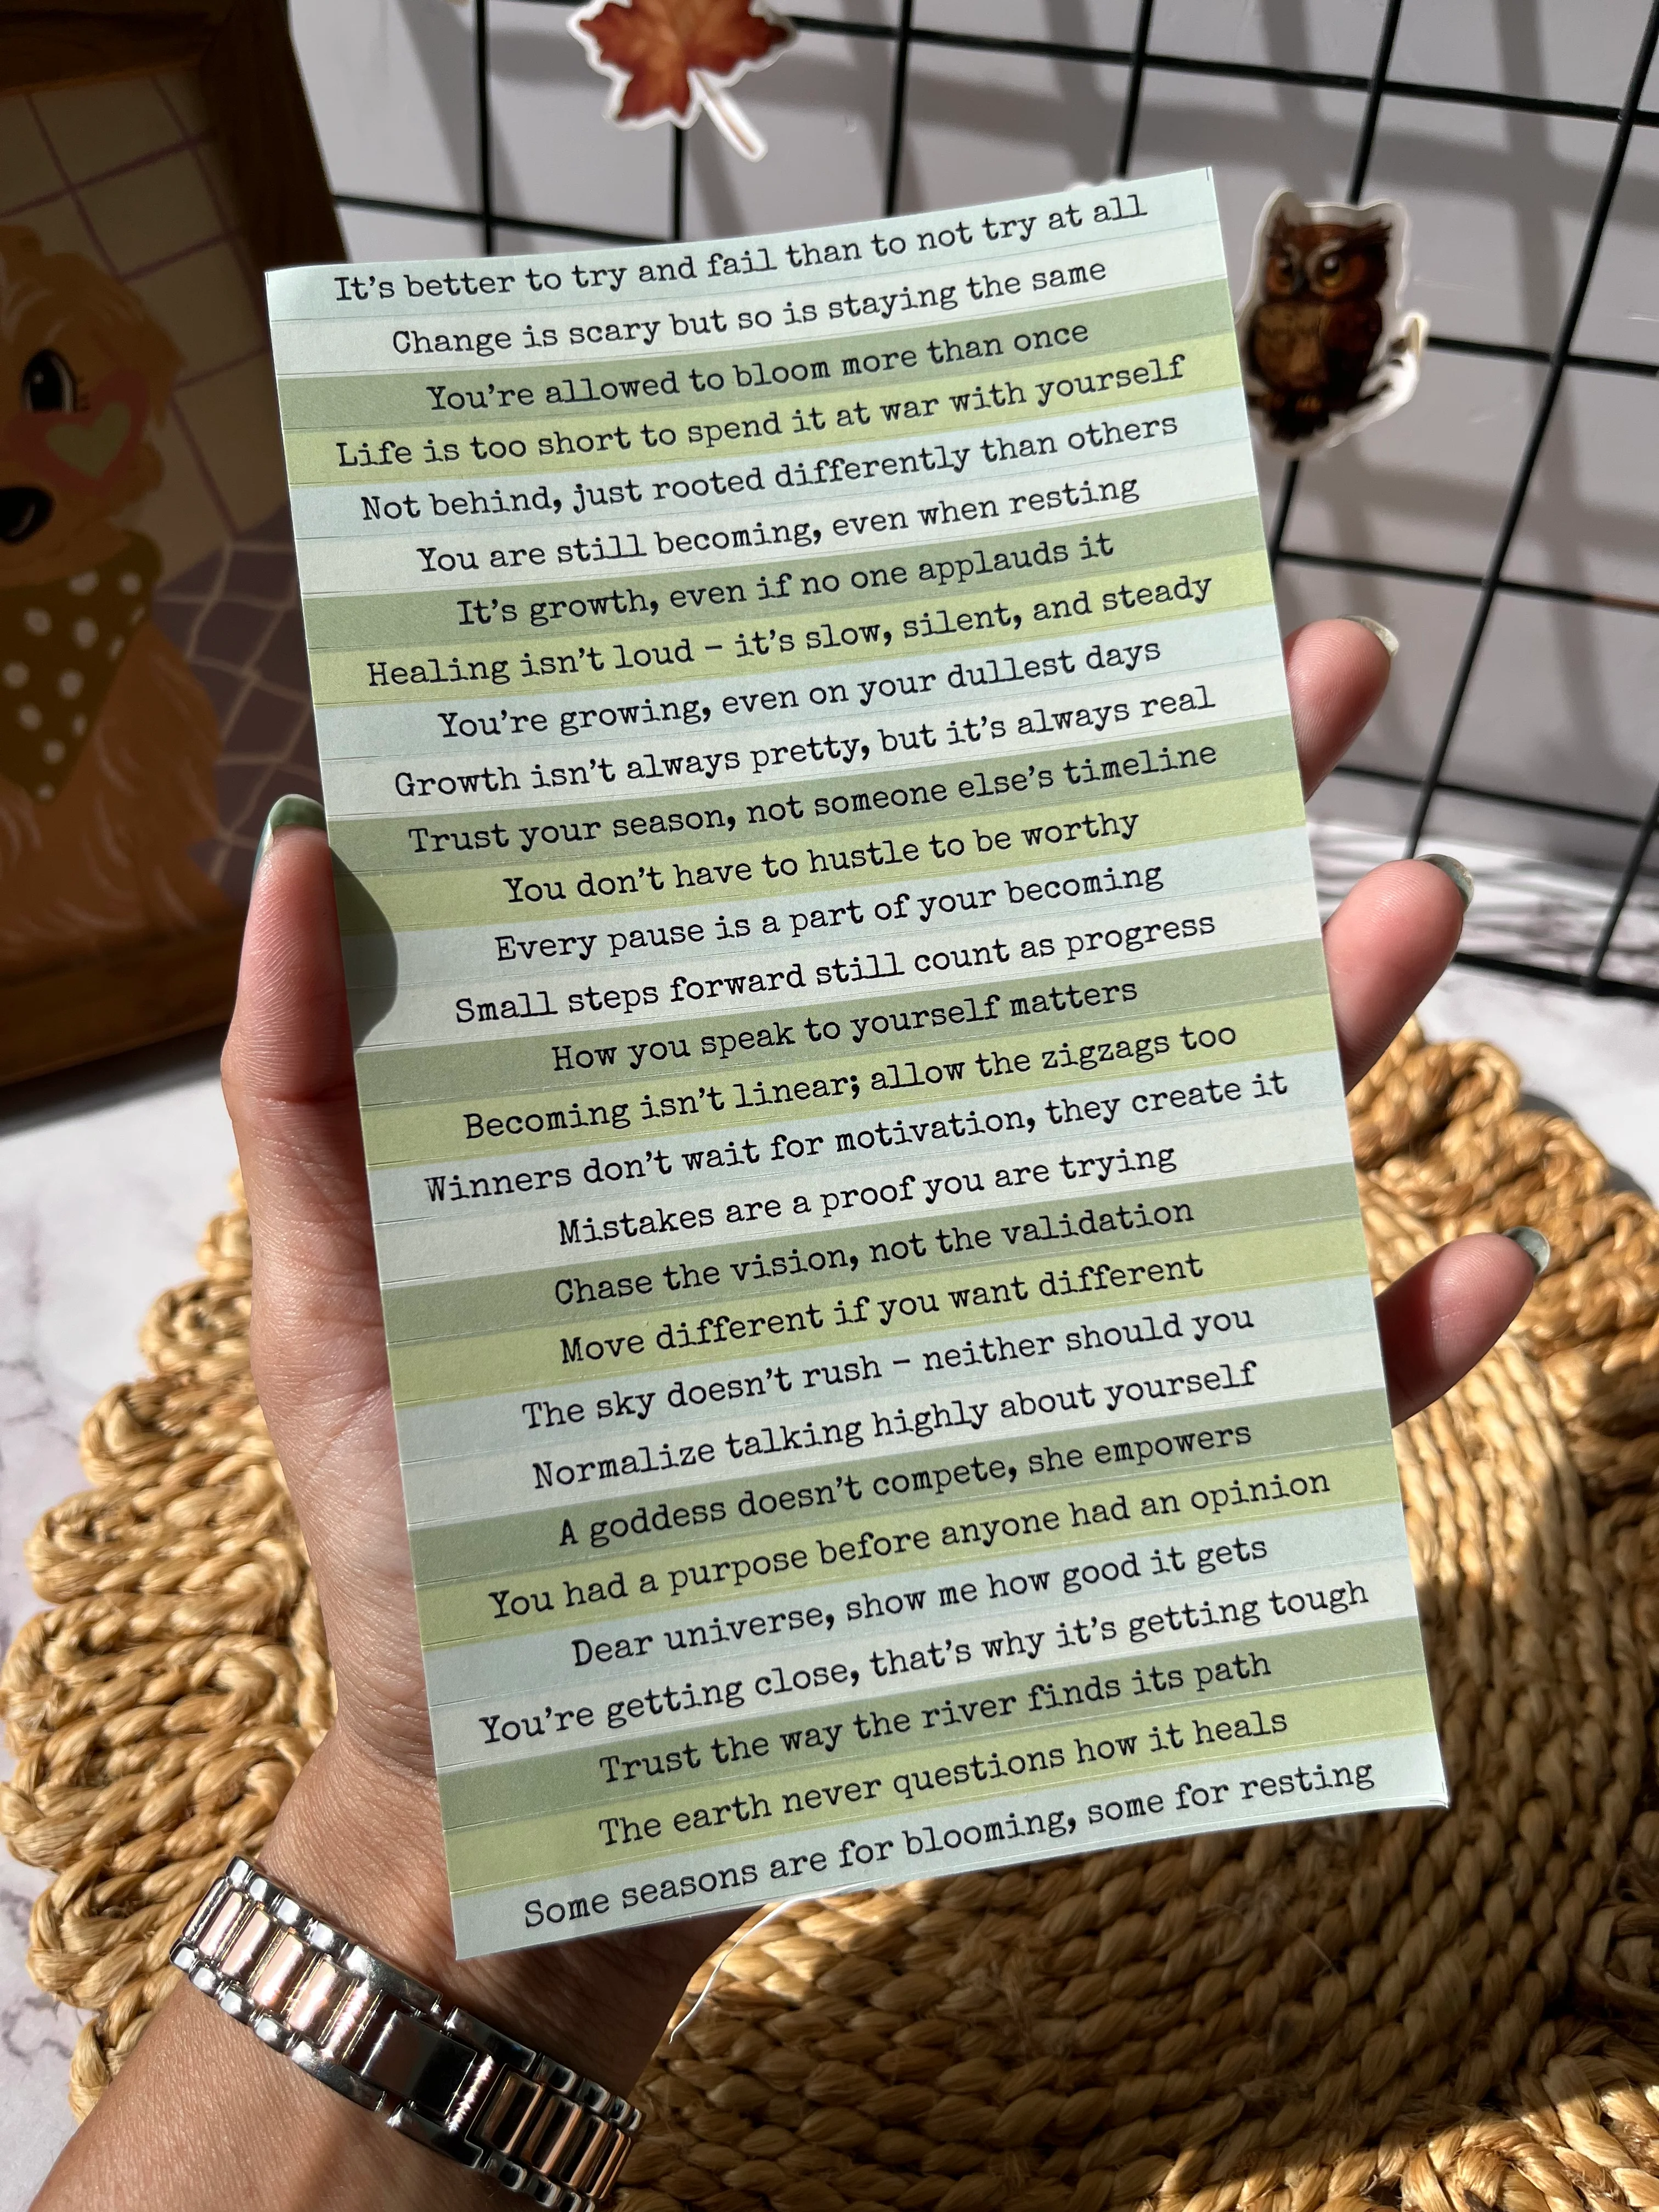 It's better to try and fail than to not try at all
Change is scary but so is staying the same
You're allowed to bloom more than once
Life is too short to spend it at war with yourself
Not behind, just rooted differently than others
You are still becoming, even when resting
It's growth, even if no one applauds it
Healing isn't loud – it's slow, silent, and steady
You're growing, even on your dullest days
Growth isn't always pretty, but it's always real
Trust your season, not someone else's timeline
You don't have to hustle to be worthy
Every pause is a part of your becoming
Small steps forward still count as progress
How you speak to yourself matters
Becoming isn't linear; allow the zigzags too
Winners don't wait for motivation, they create it
Mistakes are a proof you are trying
Chase the vision, not the validation
Move different if you want different
The sky doesn't rush – neither should you
Normalize talking highly about yourself
A goddess doesn't compete, she empowers
You had a purpose before anyone had an opinion
Dear universe, show me how good it gets
You're getting close, that's why it's getting tough
Trust the way the river finds its path
The earth never questions how it heals
Some seasons are for blooming, some for resting